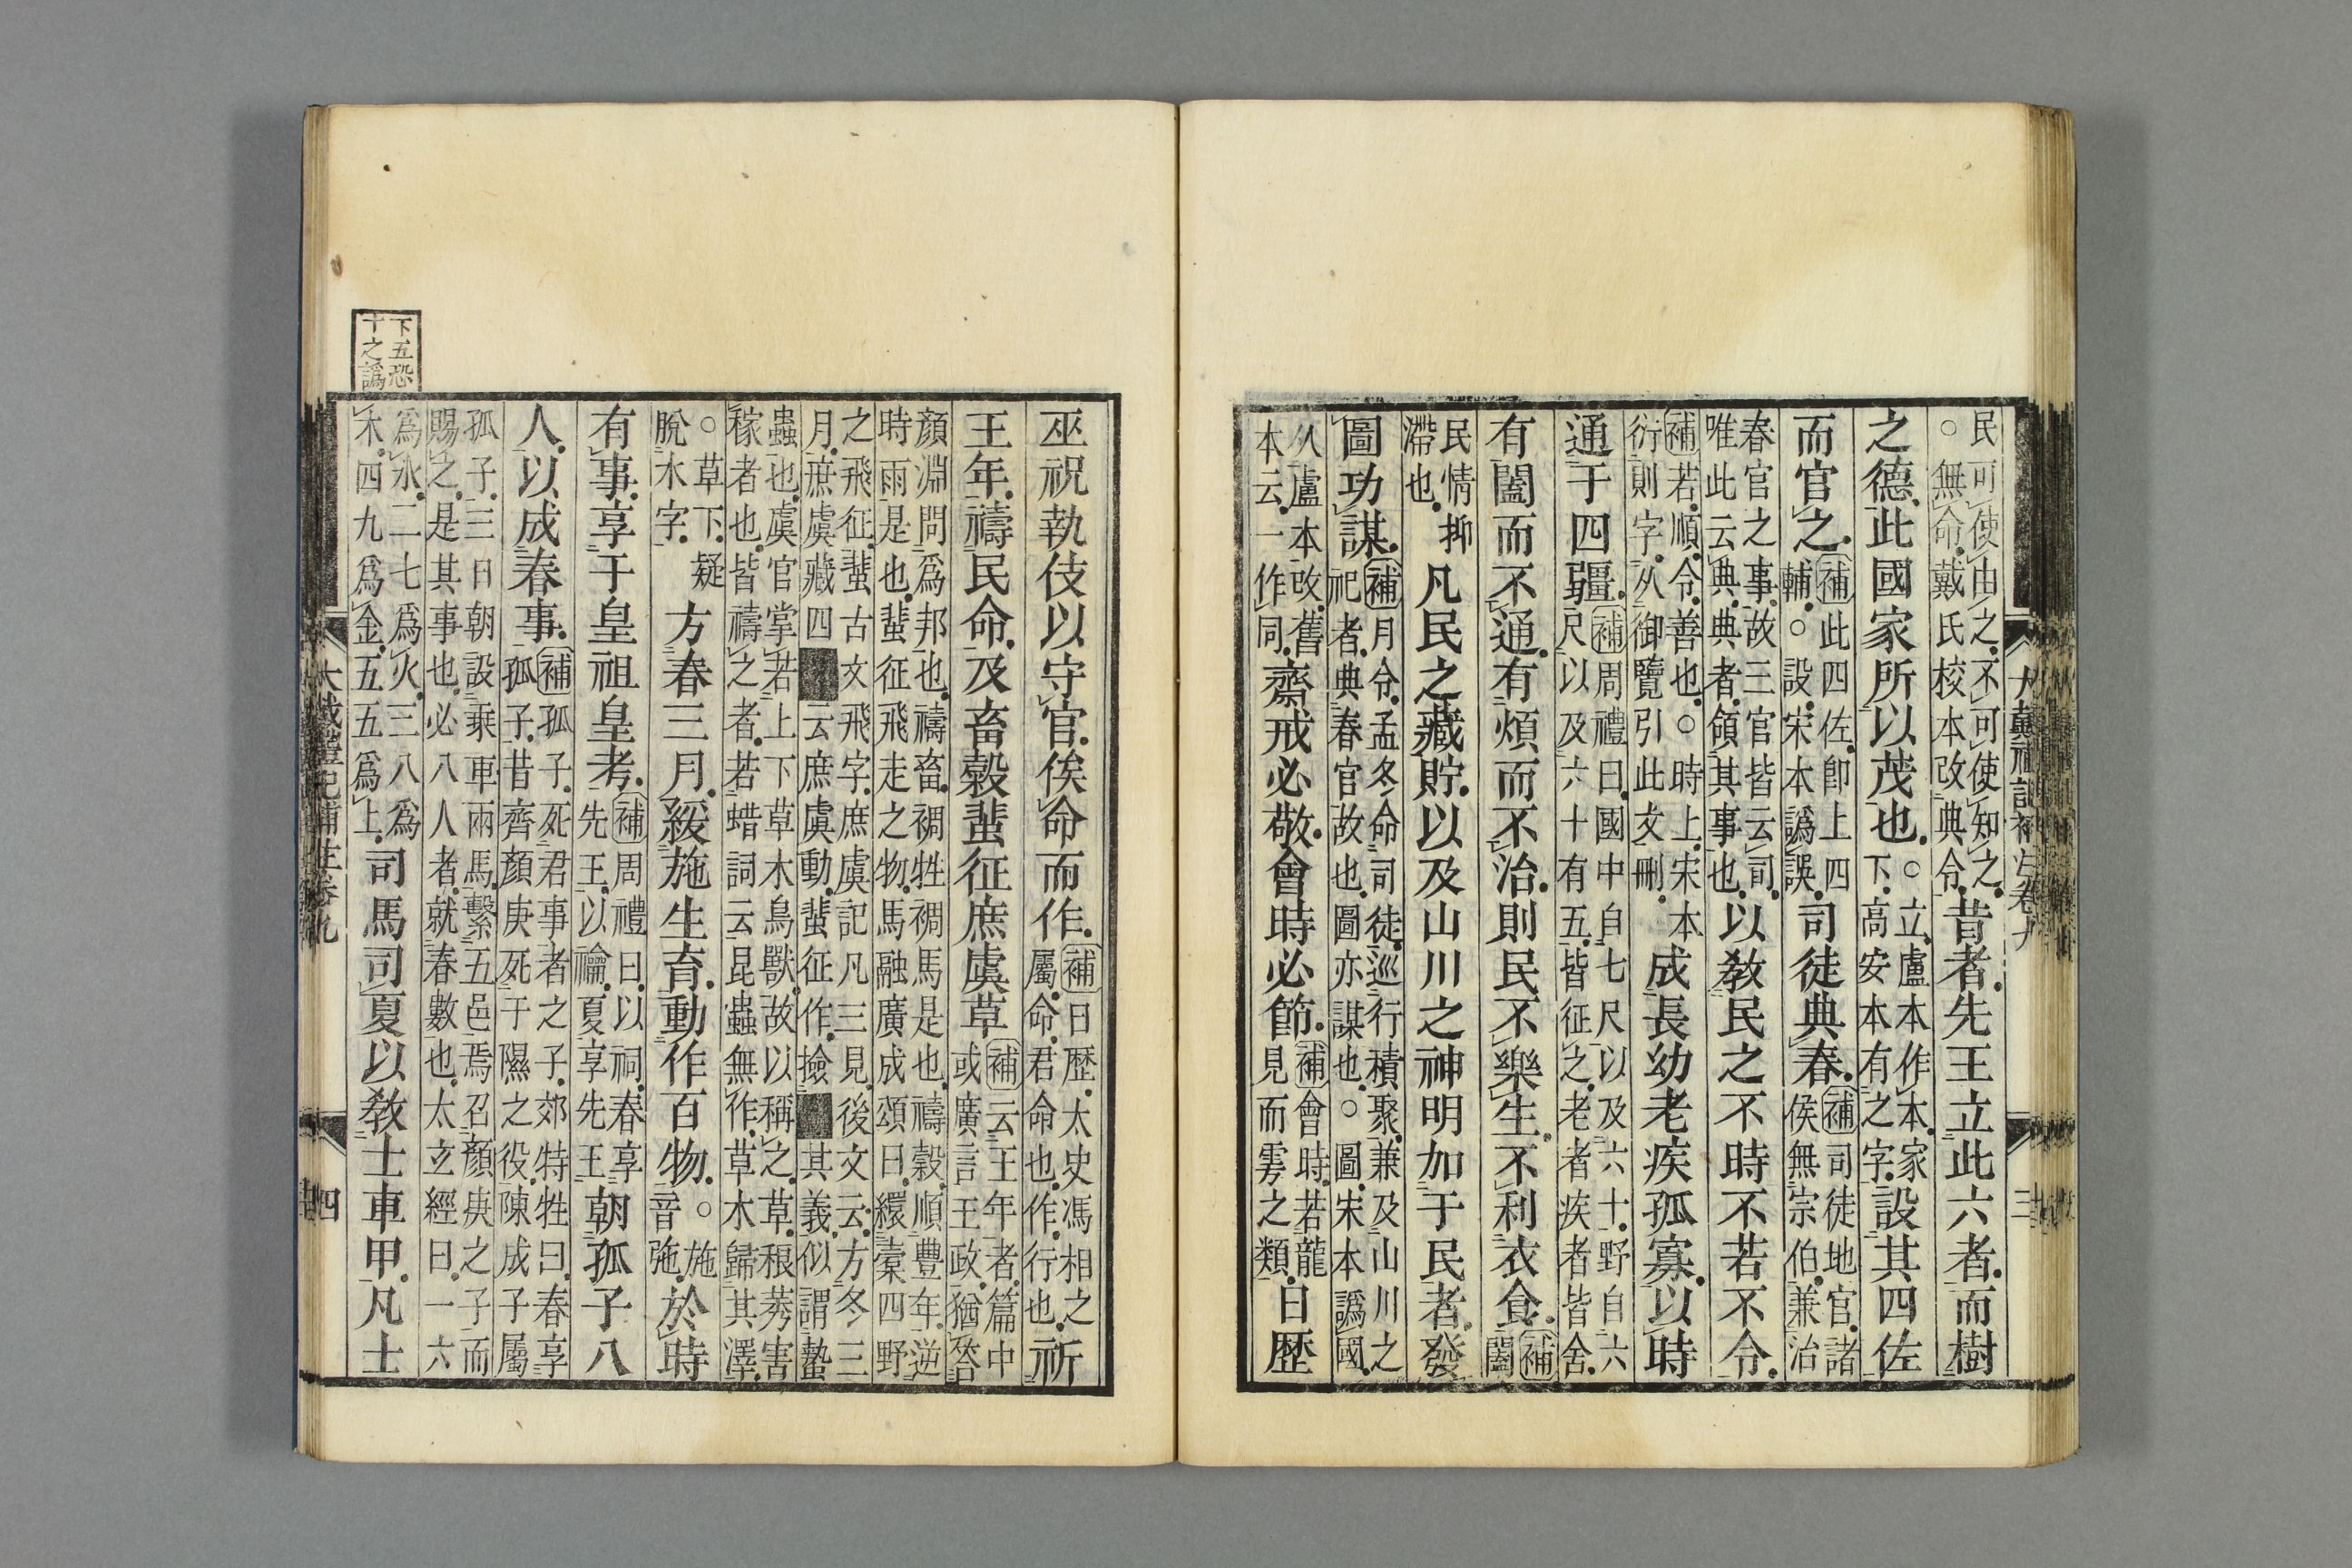 民可使由之不可使知之
○無命戴氏校本改典令
昔者先王立此六者而樹
之德此國家所以茂也
○立盧本作本家
下高安本有之字
設其四佐
而官之
補此四佐卽上四
輔○設宋本譌誤
司徒典春
補司徒地官諸
侯無宗伯兼治
春官之事故三官皆云司
唯此云典典者領其事也
以敎民之不時不若不令
補若順令善也○時上宋本
衍則字从御覽引此文刪
成長幼老疾孤寡以時
通于四疆
補周禮曰國中自七尺以及六十野自六
尺以及六十有五皆征之老者疾者皆舍
有闔而不通有煩而不治則民不樂生不利衣食
補
闔
民情抑
滯也
凡民之藏貯以及山川之神明加于民者發
圖功謀
補月令孟冬命司徒巡行積聚兼及山川之
祀者典春官故也圖亦謀也○圖宋本譌國
从盧本改舊
本云一作同
齋戒必敬會時必節
補會時若龍
見而雩之類
日歷
大戴禮記補注卷九
三
巫祝執伎以守官俟命而作
補日歷太史馮相之
屬命君命也作行也
祈
王年禱民命及畜穀蜚征庶虞草
補云王年者篇中
或廣言王政猶荅
顏淵問爲邦也禱畜禂牲禂馬是也禱穀順豐年逆
時雨是也蜚征飛走之物馬融廣成頌曰繯橐四野
之飛征蜚古文飛字庶虞記凡三見後文云方冬三
月庶虞藏四■云庶虞動蜚征作撿■其義似謂蟄
蟲也虞官掌若上下草木鳥獸故以稱之草稂莠害
稼者也皆禱之者若蜡詞云昆蟲無作草木歸其澤
○草下疑
脫木字
方春三月緩施生育動作百物
○施
音弛
於時
有事享于皇祖皇考
補周禮曰以祠春享
先王以禴夏享先王
朝孤子八
人以成春事
補孤子死君事者之子郊特牲曰春享
孤子昔齊顏庚死于隰之役陳成子屬
孤子三日朝設乘車兩馬繫五邑焉召顏庚之子而
賜之是其事也必八人者就春數也太玄經曰一六
爲水二七爲火三八爲
木四九爲金五五爲上
司馬司夏以敎士車甲凡士
下五恐
十之譌
大戴禮記補注卷九
四